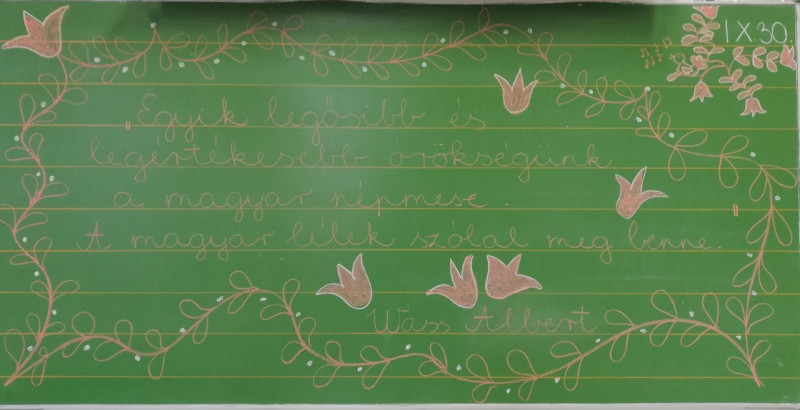 IX.30.
„Egyik legősibb és
legértékesebb örökségünk
a magyar népmese.
A magyar lélek szólal meg benne."
Wass Albert